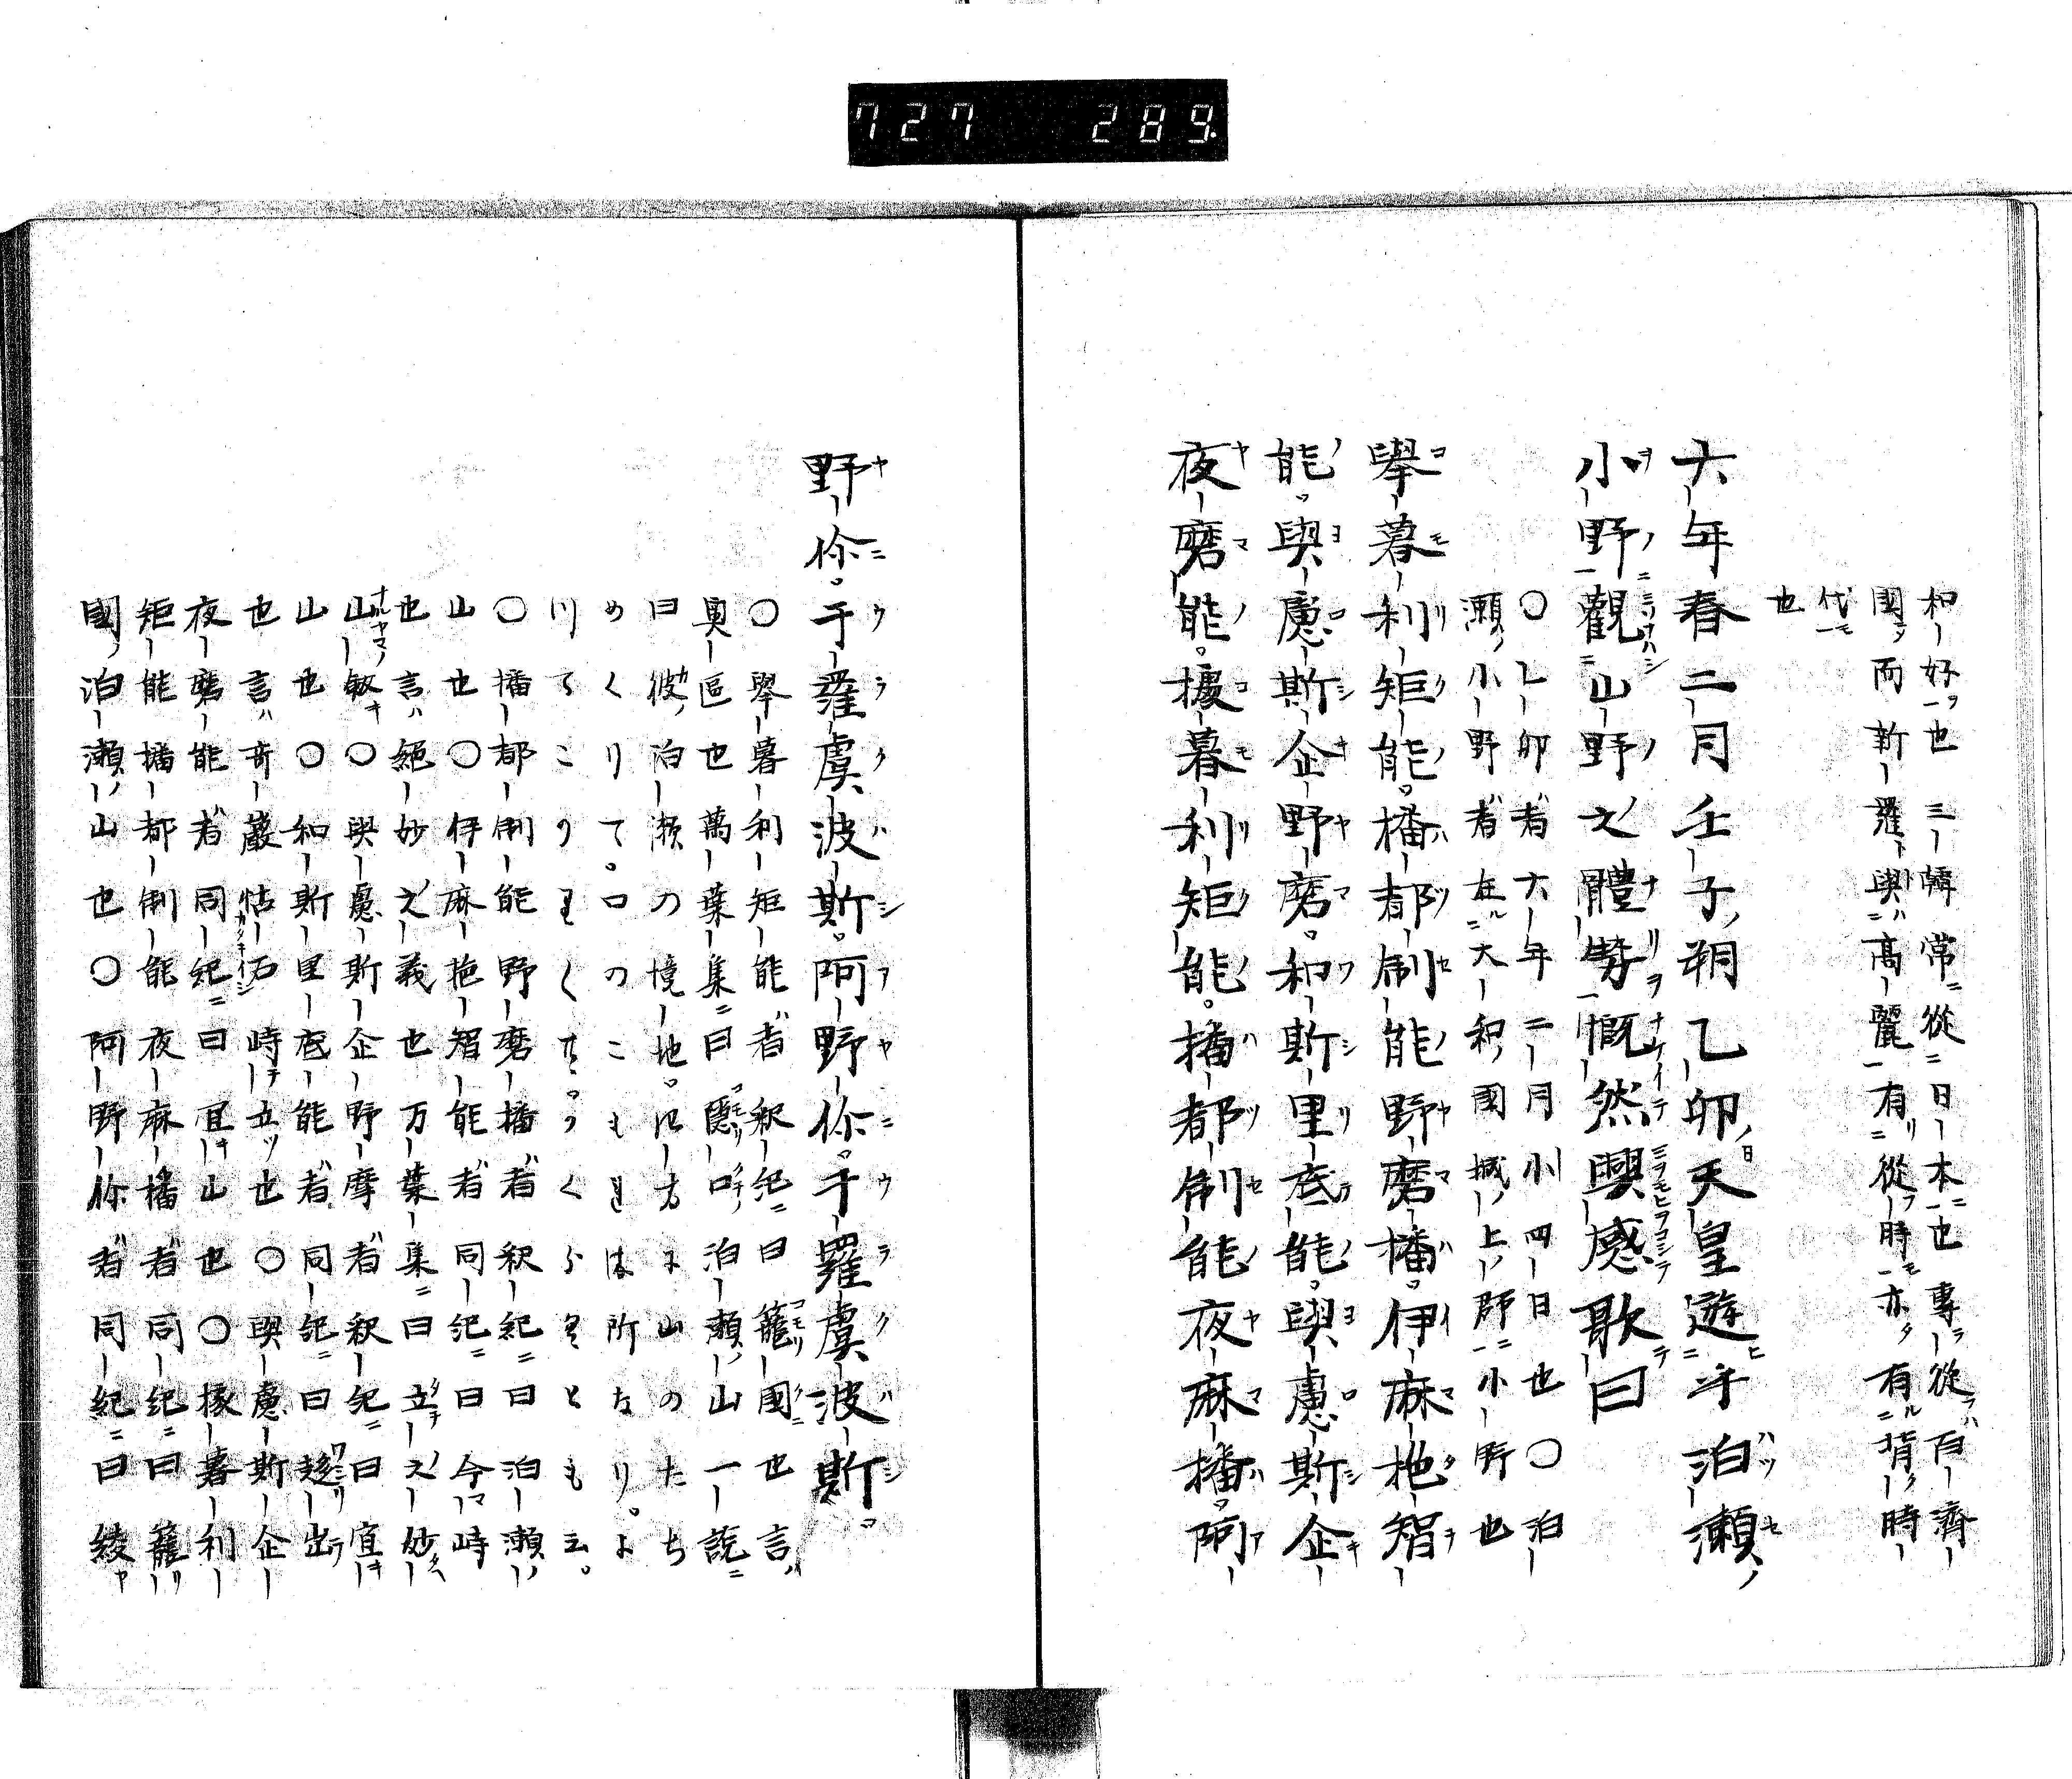 727 289
和好也三韓常從日本也專從百濟
國而新羅與高麗有從時亦有背時
代
也
六年春二月壬子朔乙卯天皇遊乎泊瀬
小野觀山野之體勢慨然興感歌曰
〇乙卯者六年二月小四日也〇泊
瀬小野者在大和國城上郡小野也
擧暮利矩能播都制能野磨播伊麻拖智
能與慮斯企野磨和斯里底能與慮斯企
夜磨能據暮利矩能播都制能夜麻播阿
野伱于羅虞波斯阿野伱于羅虞波斯
〇擧暮利矩能者釈紀曰籠國也言
奥區也萬葉集曰隠口泊瀬山一説
曰彼泊瀬の境地は四方に山のたち
めくりて口のこもれは所なりよ
〇播都制能野磨播者釈紀曰泊瀬
山也〇伊麻拖智能者同紀曰今時
也言絕妙之義也万葉集曰立之妙
山敏〇與慮斯企野摩者釈紀曰宜
山也〇和斯里底能者同紀曰趍出
也言奇巖怪石時立也〇與慮斯企
夜磨能者同紀曰宜山也〇據暮利
矩能播都制能夜麻播者同紀曰籠
國泊瀬山也〇阿野伱者同紀曰綾